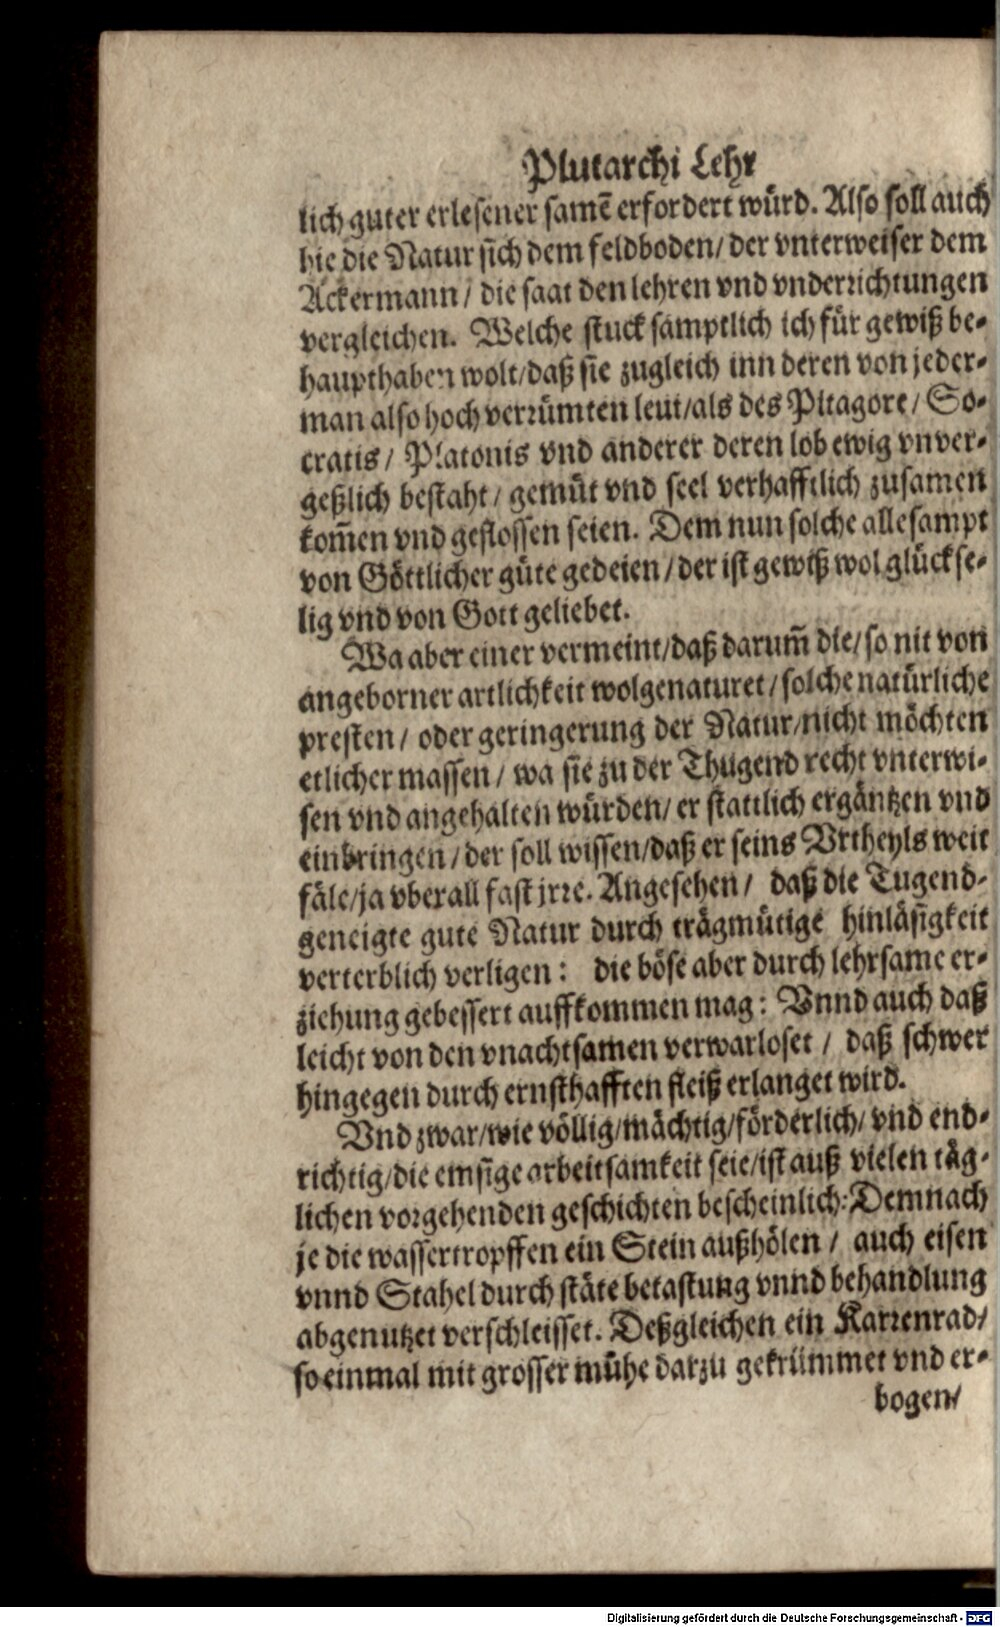 Plutarchi Lehr
lich guter erlesener samẽ erfordert würd. Also soll auch
hie die Natur sich dem feldboden/ der vnterweiser dem
Ackermann/ die saat den lehren vnd vnderrichtungen
vergleichen. Welche stuck samptlich ich für gewiß be-
haupthaben wolt/ daß sie zugleich inn deren von jeder-
man also hoch verrümten leut/ als des Pitagore/ So-
cratis/ Platonis vnd anderer deren lob ewig vnver-
geßlich bestaht/ gemüt vnd seel verhafftlich zusamen
kom̃en vnd geflossen seien. Dem nun solche allesampt
von Göttlicher güte gedeien/ der ist gewiß wol glückse-
lig vnd von Gott geliebet.
Wa aber einer vermeint/ daß darum̃ die/ so nit von
angeborner artlichkeit wolgenaturet/ solche natürliche
presten/ oder geringerung der Natur/ nicht möchten
etlicher massen/ wa sie zu der Thugend recht vnterwi-
sen vnd angehalten würden/ er stattlich ergäntzen vnd
einbringen/ der soll wissen/ daß er seins Vrtheyls weit
fäle/ ja vberall fast jrre. Angesehen/ daß die Tugend-
geneigte gute Natur durch trägmütige hinläsigkeit
verterblich verligen: die böse aber durch lehrsame er-
ziehung gebessert auffkommen mag: Vnnd auch daß
leicht von den vnachtsamen verwarloset/ daß schwer
hingegen durch ernsthafften fleiß erlanget wird.
Vnd zwar/ wie völlig/ mächtig/ förderlich/ vnd end-
richtig/ die emsige arbeitsamkeit seie/ ist auß vielen täg-
lichen vorgehenden geschichten bescheinlich: Demnach
je die wassertropffen ein Stein außhölen/ auch eisen
vnnd Stahel durch stäte betastung vnnd behandlung
abgenutzet verschleisset. Deßgleichen ein Karrenrad/
so einmal mit grosser mühe darzu gekrümmet vnd er-
bogen/
Digitalisierung gefördert durch die Deutsche Forschungsgemeinschaft - DFG